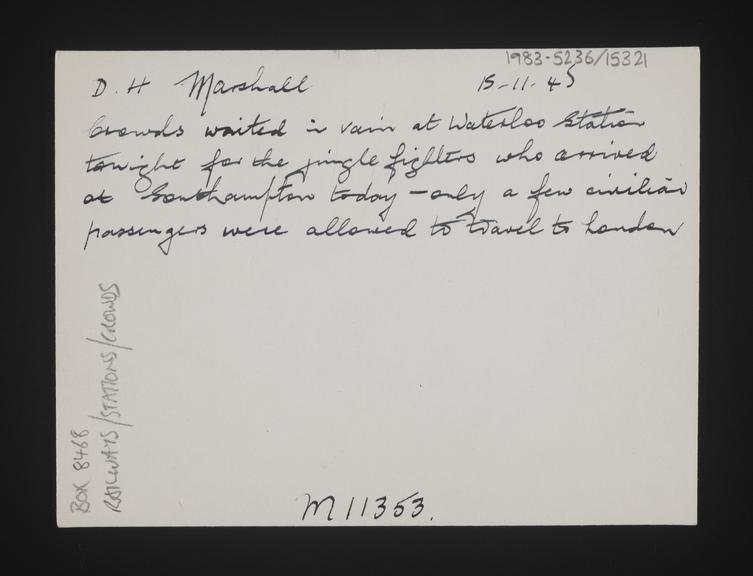 1983-5236/15321
D. H Marshall 15-11-45
Crowds waited in vain at Waterloo Station
tonight for the jungle fighters who arrived
at Southampton today - only a few civilian
passengers were allowed to travel to London
BOX 8468
RAILWAYS/STATIONS/CROWDS
M11353.